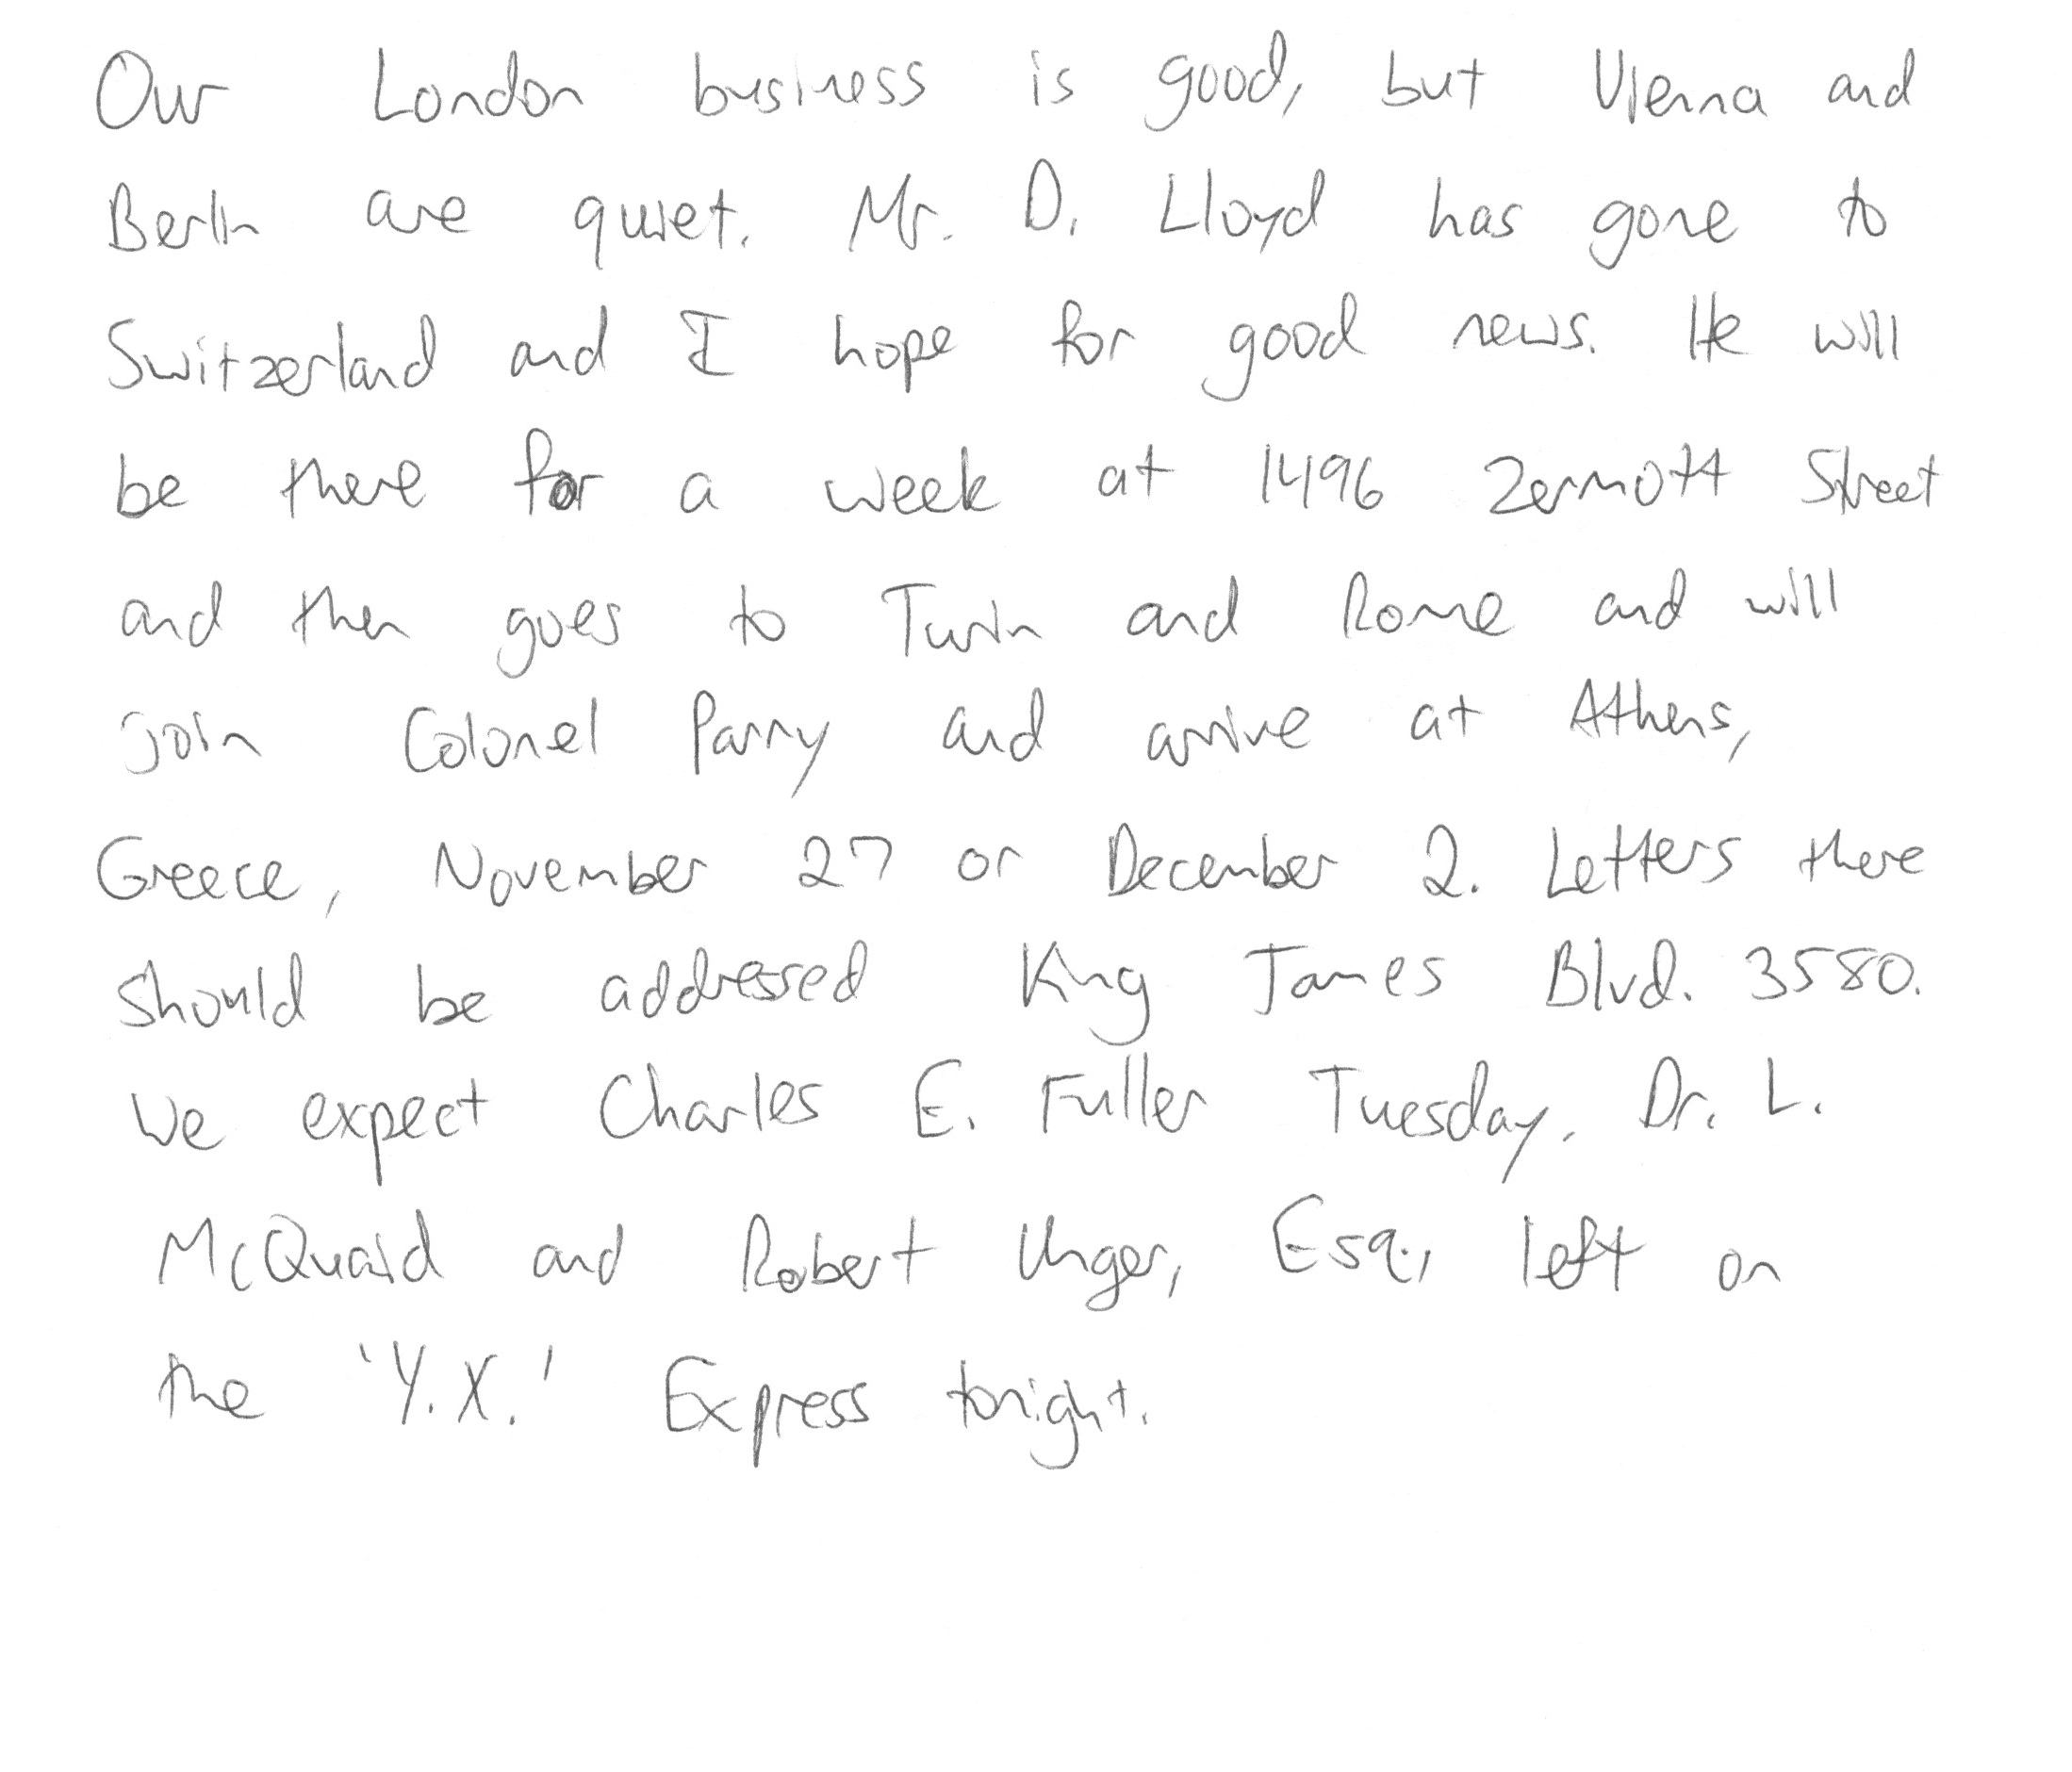 Our London business is good, but Vienna and
Berlin are quiet. Mr. D. Lloyd has gone to
Switzerland and I hope for good news. He will
be there for a week at 1496 Zermott Street
and then goes to Turin and Rome and will
join Colonel Parry and arrive at Athens,
Greece, November 27 or December 2. Letters there
should be addressed King James Blvd. 3580.
We expect Charles E. Fuller Tuesday. Dr. L.
McQuaid and Robert Unger, Esq., left on
the 'Y.X.' Express tonight.